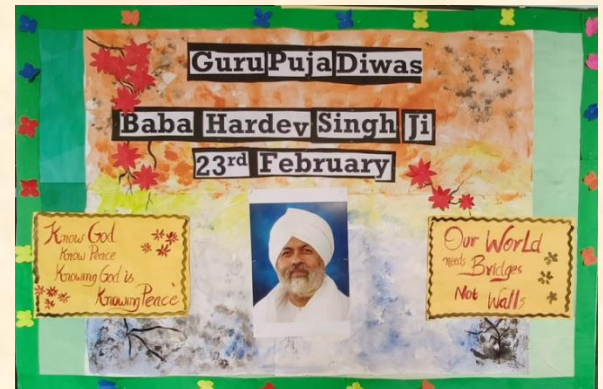 Guru Puja Diwas
Baba Hardev Singh Ji
23rd February
Know God
Know Peace
Knowing God is
Knowing Peace
Our World
needs Bridges
Not Walls